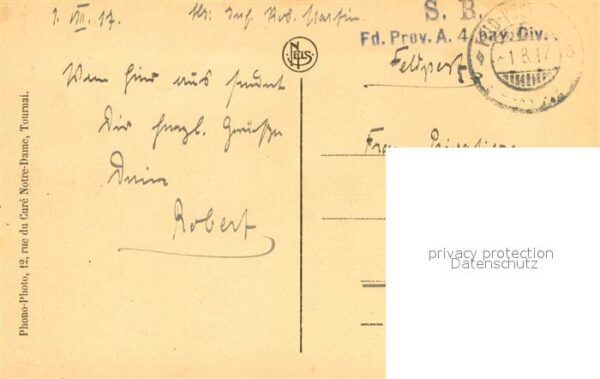 1. VIII. 17.
S. B.
Fd. Prov. A. 4. bay. Div.
Feldpost
-1.8.17
NELS
Von hier aus sendet
Dir herzl. Grüße
Dein
Robert
Phono-Photo, 12, rue du Curé Notre-Dame, Tournai.
privacy protection
Datenschutz